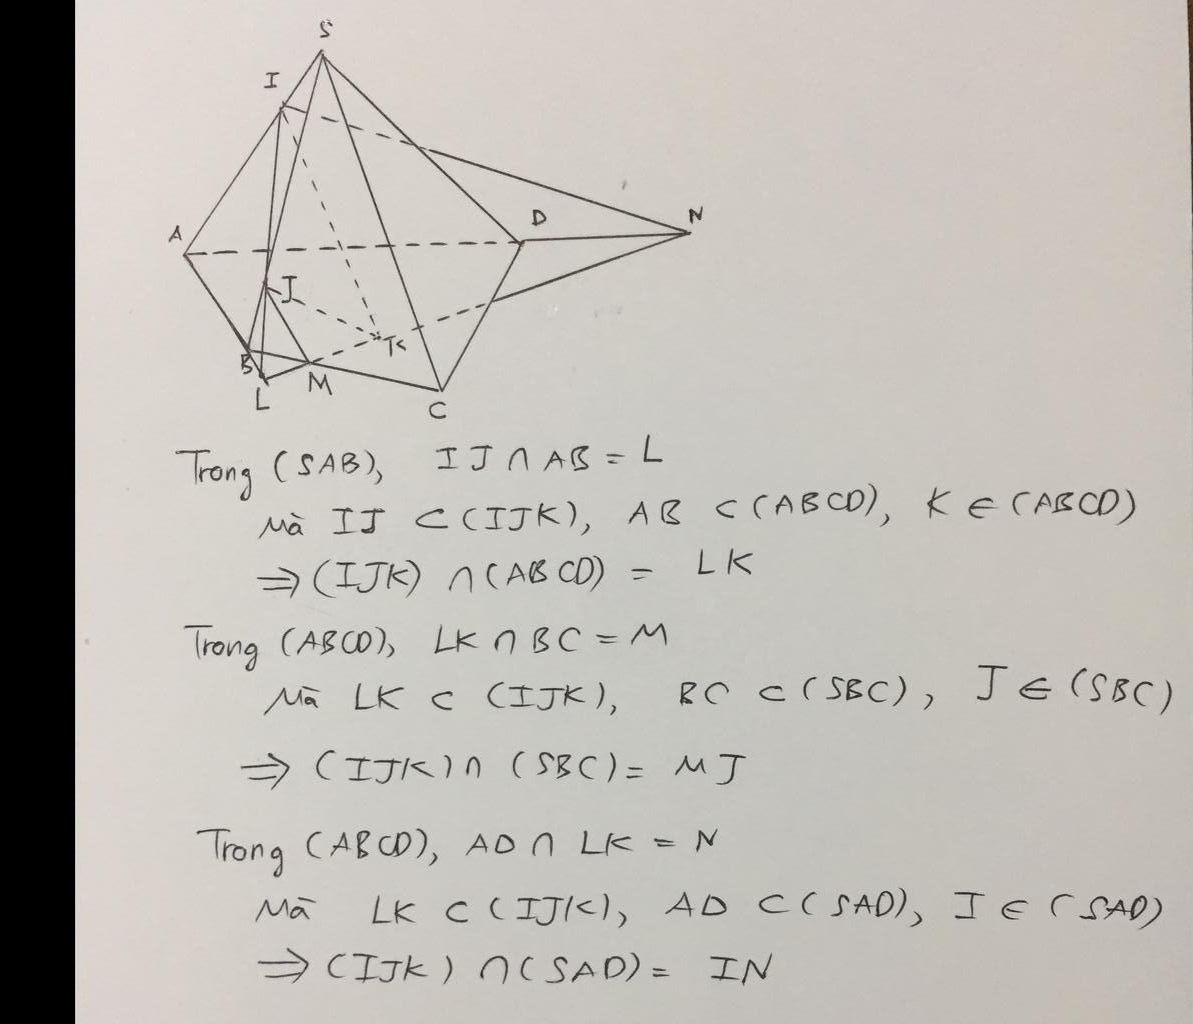 S
I
A
D
N
J
B
K
M
L
C
Trong (SAB), IJ ∩ AB = L
Mà IJ ⊂ (IJK), AB ⊂ (ABCD), K ∈ (ABCD)
⇒ (IJK) ∩ (ABCD) = LK
Trong (ABCD), LK ∩ BC = M
Mà LK ⊂ (IJK), BC ⊂ (SBC), J ∈ (SBC)
⇒ (IJK) ∩ (SBC) = MJ
Trong (ABCD), AD ∩ LK = N
Mà LK ⊂ (IJK), AD ⊂ (SAD), I ∈ (SAD)
⇒ (IJK) ∩ (SAD) = IN